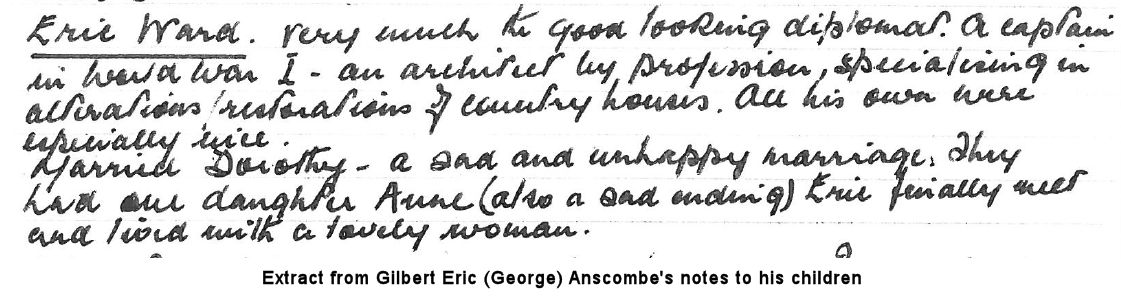 Eric Ward. Very much the good looking diplomat. A captain
in World War I - an architect by profession, specialising in
alterations/restorations of country houses. All his own were
especially nice.
Married Dorothy - a sad and unhappy marriage. They
had one daughter Anne (also a sad ending) Eric finally met
and lived with a lovely woman.
Extract from Gilbert Eric (George) Anscombe's notes to his children